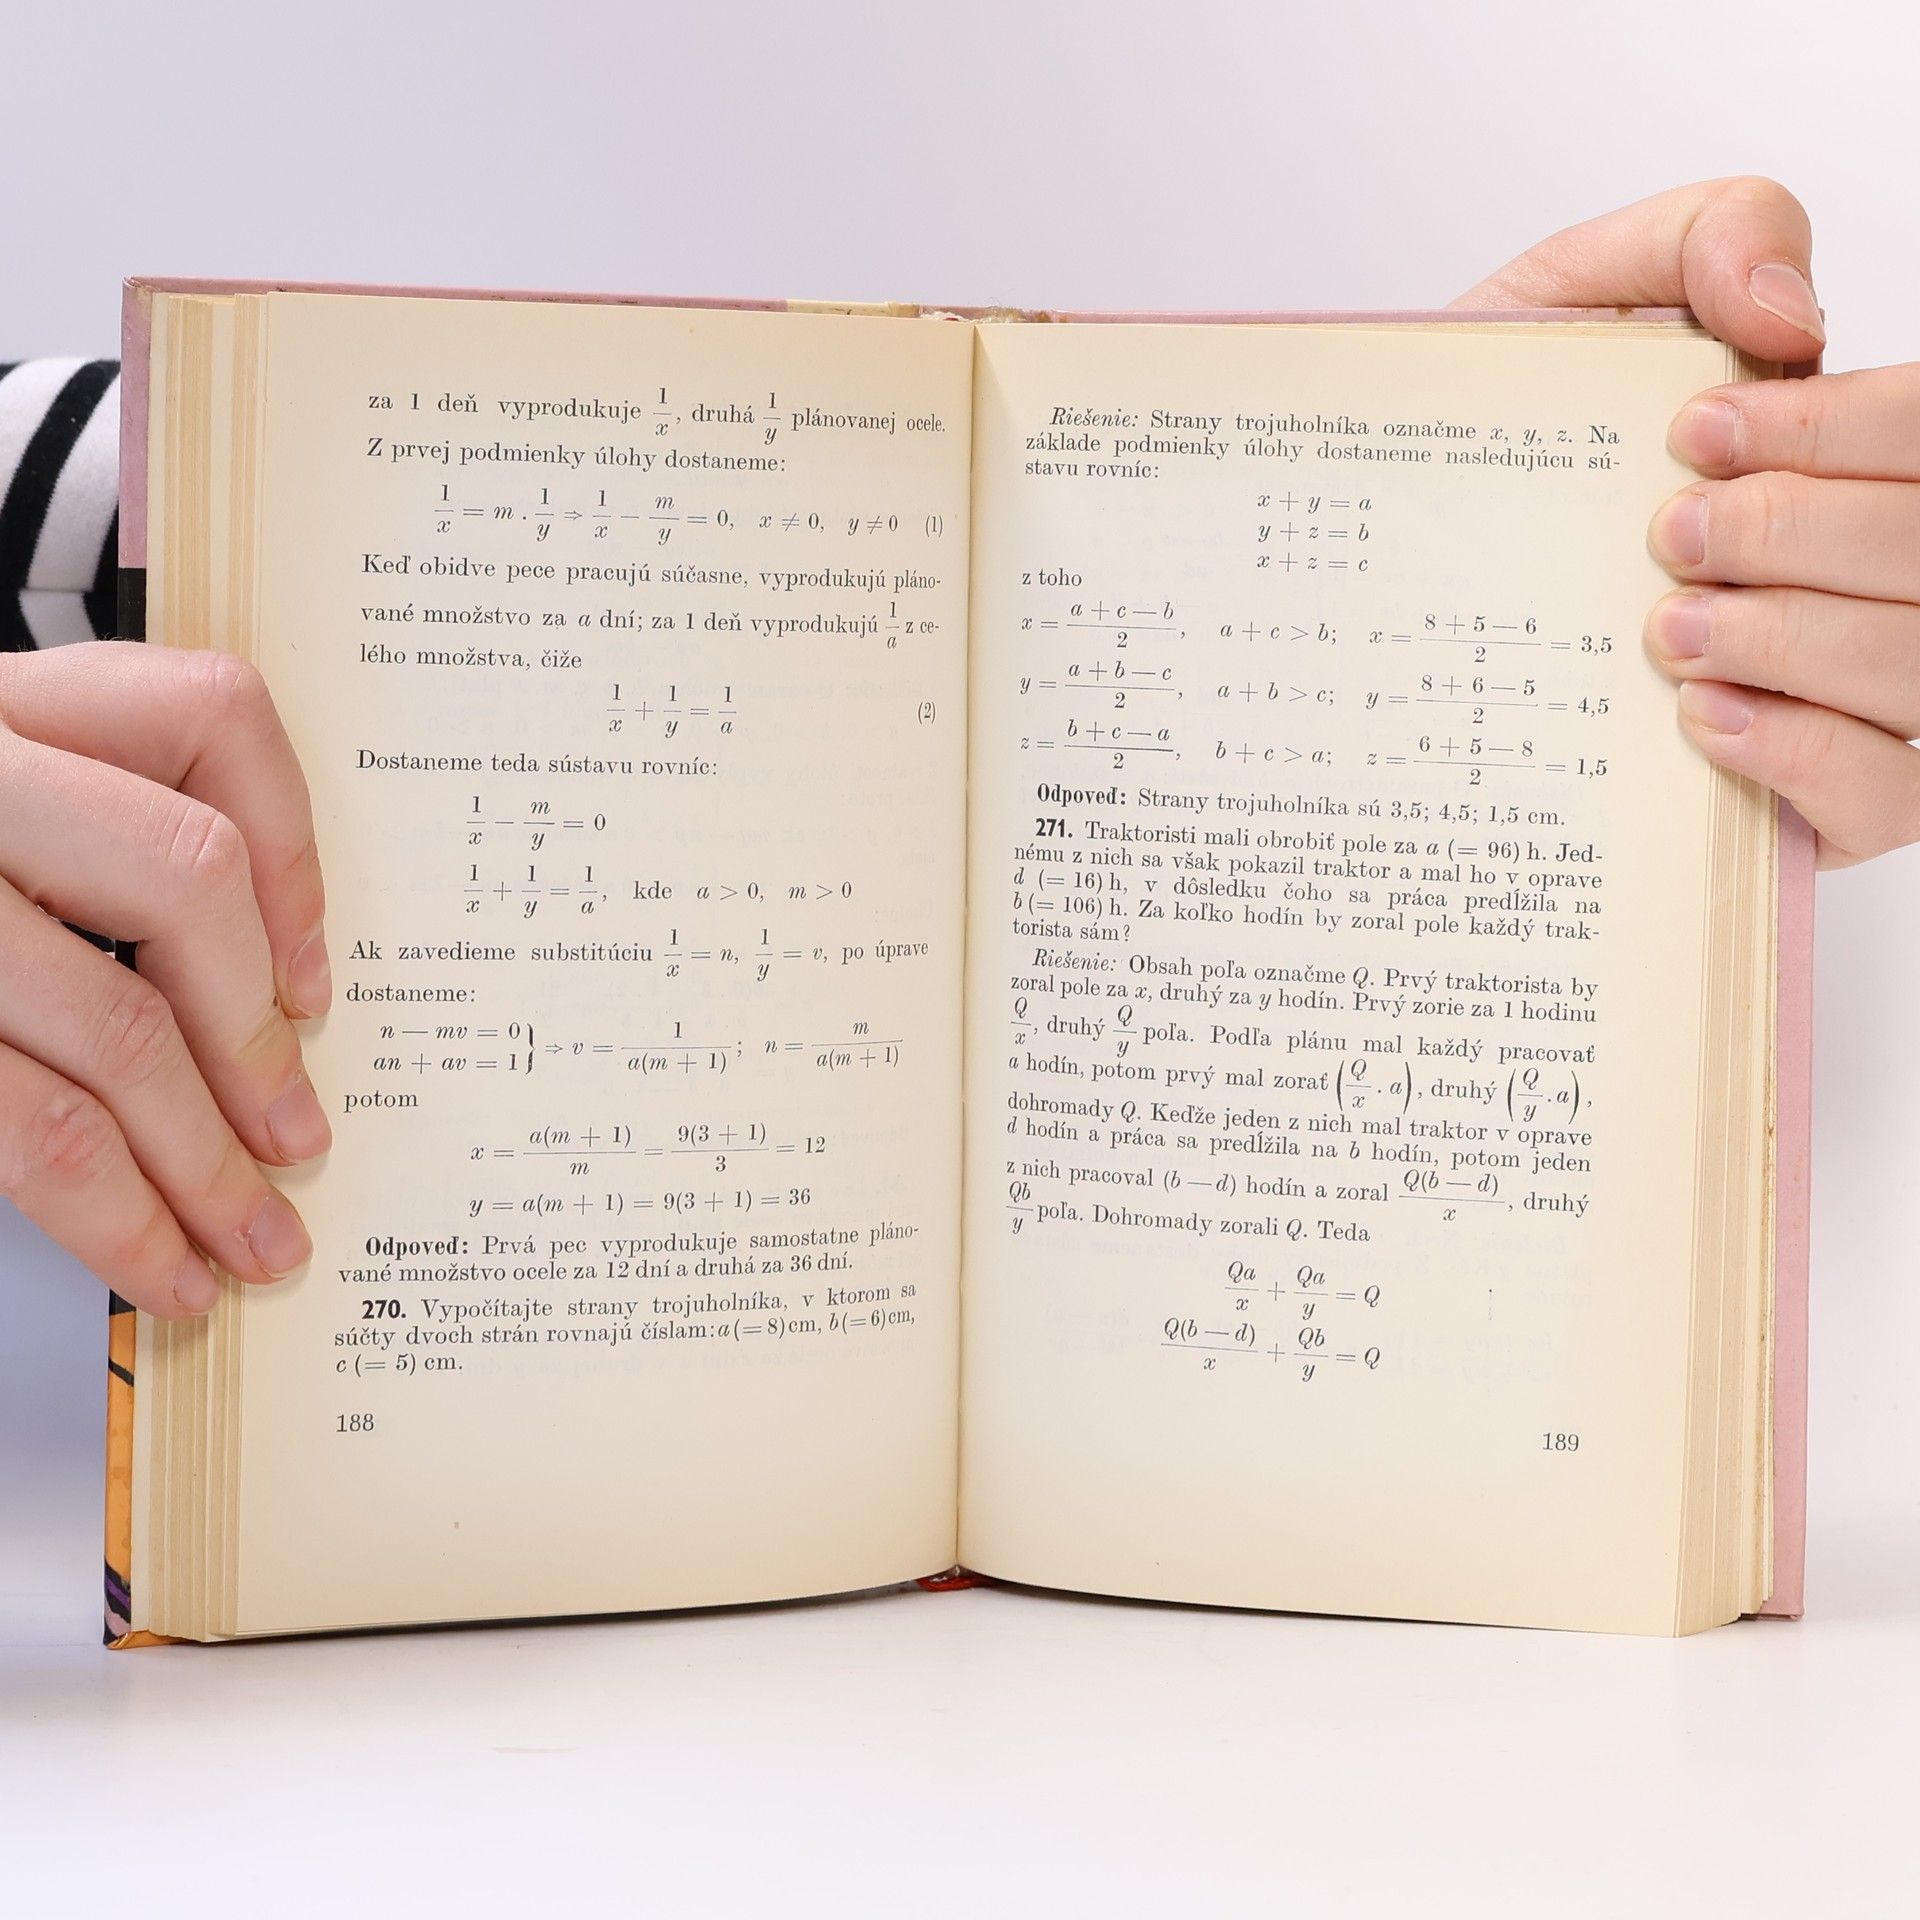 za 1 deň vyprodukuje 1/x, druhá 1/y plánovanej ocele.
Z prvej podmienky úlohy dostaneme:
1/x = m . 1/y ⇒ 1/x − m/y = 0, x ≠ 0, y ≠ 0 (1)
Keď obidve pece pracujú súčasne, vyprodukujú pláno-
vané množstvo za a dní; za 1 deň vyprodukujú 1/a z ce-
lého množstva, čiže
1/x + 1/y = 1/a (2)
Dostaneme teda sústavu rovníc:
1/x − m/y = 0
1/x + 1/y = 1/a, kde a > 0, m > 0
Ak zavedieme substitúciu 1/x = n, 1/y = v, po úprave
dostaneme:
n — mv = 0
an + av = 1 } ⇒ v = 1/a(m + 1); n = m/a(m + 1)
potom
x = a(m + 1)/m = 9(3 + 1)/3 = 12
y = a(m + 1) = 9(3 + 1) = 36
Odpoveď: Prvá pec vyprodukuje samostatne pláno-
vané množstvo ocele za 12 dní a druhá za 36 dní.
270. Vypočítajte strany trojuholníka, v ktorom sa
súčty dvoch strán rovnajú číslam: a (= 8) cm, b (= 6) cm,
c (= 5) cm.
188
Riešenie: Strany trojuholníka označme x, y, z. Na
základe podmienky úlohy dostaneme nasledujúcu sú-
stavu rovníc:
x + y = a
y + z = b
x + z = c
z toho
x = a + c — b/2, a + c > b; x = 8 + 5 — 6/2 = 3,5
y = a + b — c/2, a + b > c; y = 8 + 6 — 5/2 = 4,5
z = b + c — a/2, b + c > a; z = 6 + 5 — 8/2 = 1,5
Odpoveď: Strany trojuholníka sú 3,5; 4,5; 1,5 cm.
271. Traktoristi mali obrobiť pole za a (= 96) h. Jed-
nému z nich sa však pokazil traktor a mal ho v oprave
d (= 16) h, v dôsledku čoho sa práca predĺžila na
b (= 106) h. Za koľko hodín by zoral pole každý trak-
torista sám?
Riešenie: Obsah poľa označme Q. Prvý traktorista by
zoral pole za x, druhý za y hodín. Prvý zorie za 1 hodinu
Q/x, druhý Q/y poľa. Podľa plánu mal každý pracovať
a hodín, potom prvý mal zorať (Q/x . a), druhý (Q/y . a),
dohromady Q. Keďže jeden z nich mal traktor v oprave
d hodín a práca sa predĺžila na b hodín, potom jeden
z nich pracoval (b — d) hodín a zoral Q(b — d)/x, druhý
Qb/y poľa. Dohromady zorali Q. Teda
Qa/x + Qa/y = Q
Q(b — d)/x + Qb/y = Q
189